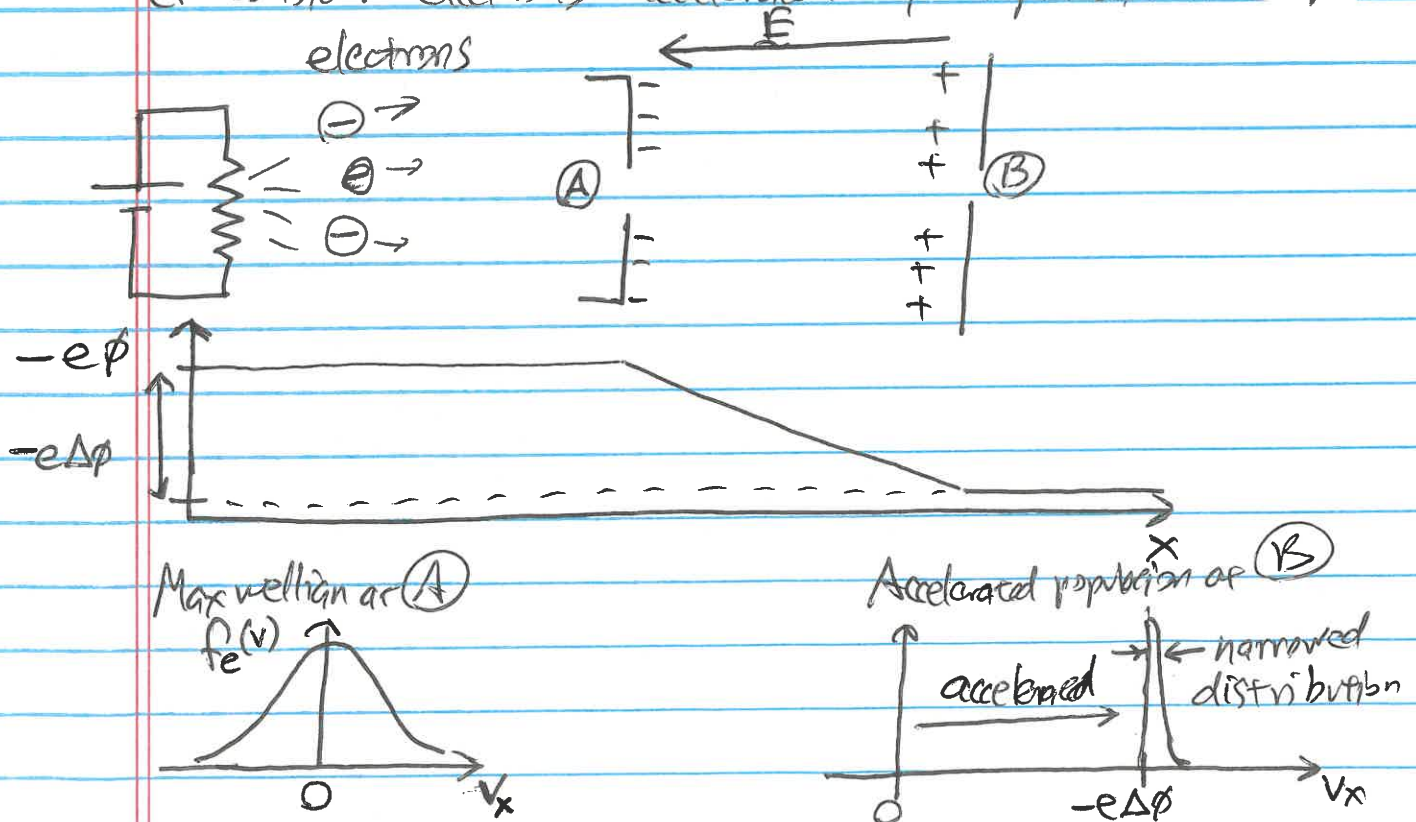 electrons
E
+
+
+
+
+
+
−
−
−
−
−
−
A
B
⊖ →
e →
⊖ →
−eϕ
−eΔϕ
x
Maxwellian at A
fe(v)
0
vx
Accelerated population at B
accelerated
→ ← narrowed
distribution
0
−eΔϕ
vx